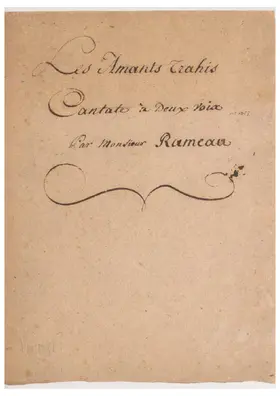 Les Amants Trahis
Cantate à Deux voix
Par Monsieur Rameau